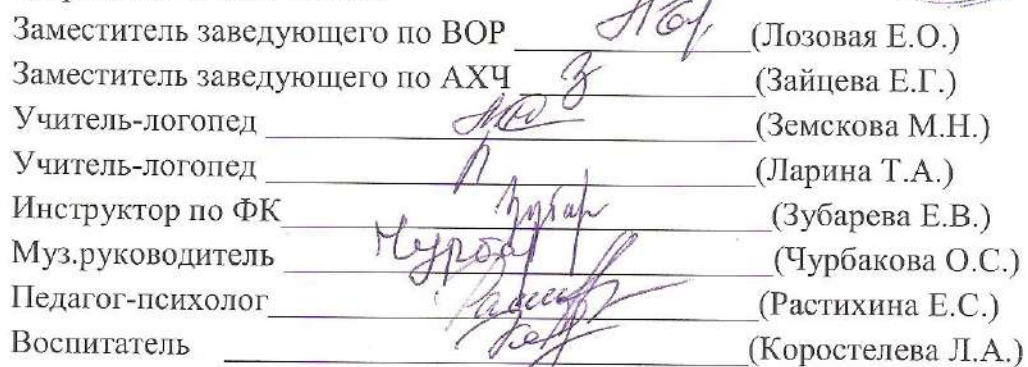 Заместитель заведующего по ВОР (Лозовая Е.О.)
Заместитель заведующего по АХЧ (Зайцева Е.Г.)
Учитель-логопед (Земскова М.Н.)
Учитель-логопед (Ларина Т.А.)
Инструктор по ФК Зубар (Зубарева Е.В.)
Муз.руководитель Чурбак (Чурбакова О.С.)
Педагог-психолог (Растихина Е.С.)
Воспитатель (Коростелева Л.А.)